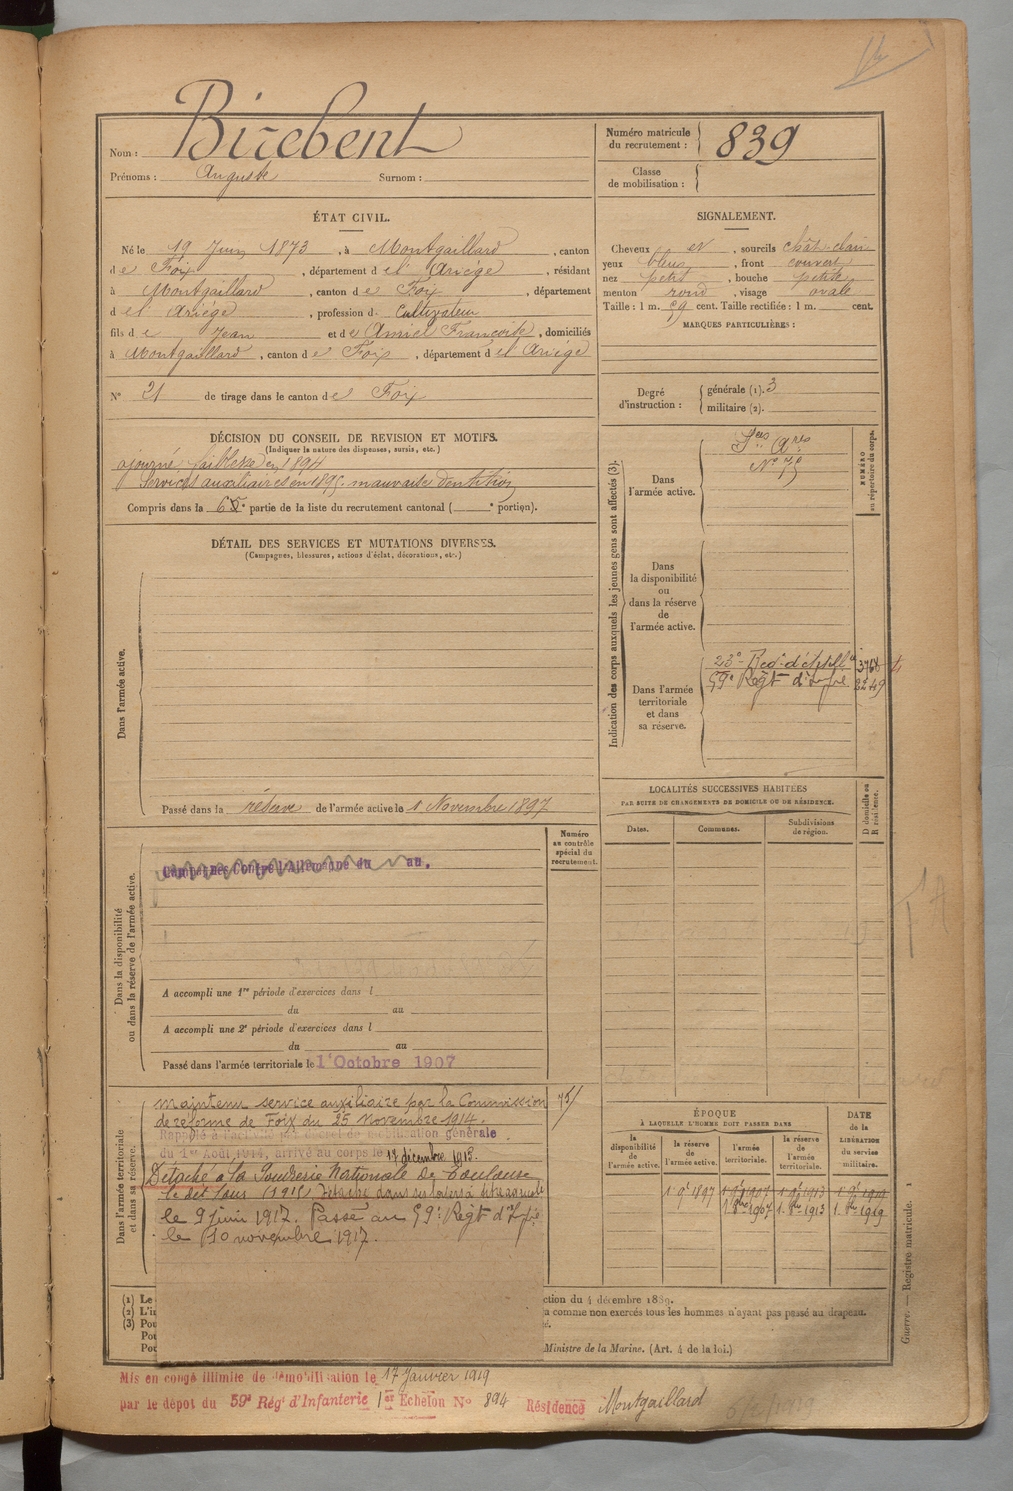 Nom : Birebent
Prénoms : Auguste Surnom :
Numéro matricule du recrutement : 839
Classe de mobilisation :
ÉTAT CIVIL.
Né le 19 Juin 1873, à Montgaillard, canton
de Foix, département de l'Ariège, résidant
à Montgaillard, canton de Foix, département
de l'Ariège, profession de Cultivateur
fils de Jean et de Amiel Françoise, domiciliés
à Montgaillard, canton de Foix, département de l'Ariège
N° 21 de tirage dans le canton de Foix
SIGNALEMENT.
Cheveux et, sourcils chât. clair
yeux bleus, front couvert
nez petit, bouche petite
menton rond, visage ovale
Taille : 1 m. 59 cent. Taille rectifiée : 1 m. cent.
MARQUES PARTICULIÈRES :
Degré d'instruction : générale (1). 3
militaire (2).
DÉCISION DU CONSEIL DE REVISION ET MOTIFS.
(Indiquer la nature des dispenses, sursis, etc.)
ajourné, faiblesse en 1894
Services auxiliaires en 1895 mauvaise dentition
Compris dans la 6e partie de la liste du recrutement cantonal ( e portion).
DÉTAIL DES SERVICES ET MUTATIONS DIVERSES.
(Campagnes, blessures, actions d'éclat, décorations, etc.)
Dans l'armée active.
Passé dans la réserve de l'armée active le 1 Novembre 1897
Indication des corps auxquels les jeunes gens sont affectés (3).
NUMÉRO au répertoire du corps.
Dans l'armée active.
Dans la disponibilité ou dans la réserve de l'armée active.
Dans l'armée territoriale et dans sa réserve.
23e Régt d'Artill
59e Regt d'Infie 2249
LOCALITÉS SUCCESSIVES HABITÉES
PAR SUITE DE CHANGEMENTS DE DOMICILE OU DE RÉSIDENCE.
Dates. Communes. Subdivisions de région.
D domicile ou R résidence.
Dans la disponibilité ou dans la réserve de l'armée active.
Numéro au contrôle spécial du recrutement.
Campagnes Contre l'Allemagne du au.
A accompli une 1re période d'exercices dans l
du au
A accompli une 2e période d'exercices dans l
du au
Passé dans l'armée territoriale le 1r Octobre 1907
Dans l'armée territoriale et dans sa réserve.
maintenu service auxiliaire par la Commission
de réforme de Foix du 25 Novembre 1914.
Rappelé à l'activité par décret de mobilisation générale
du 1er Août 1914, arrivé au corps le 17 décembre
Détaché à la Poudrerie Nationale de Toulouse
le dit jour (1915) Détaché
le 9 Juin 1917. Passé au 59e Regt d'Infie
le 10 novembre 1917.
ÉPOQUE
À LAQUELLE L'HOMME DOIT PASSER DANS
la disponibilité de l'armée active.
la réserve de l'armée active.
l'armée territoriale.
la réserve de l'armée territoriale.
DATE de la LIBÉRATION du service militaire.
1r 9e 1897
1. 8bre 1907 1. 8bre 1913 1. 8bre 1919
(1) Le
(2) L'in
(3) Pou
Pou
Pou
ction du 4 décembre 1889.
a comme non exercés tous les hommes n'ayant pas passé au drapeau.
é.
Ministre de la Marine. (Art. 4 de la loi.)
Guerre. — Registre matricule. 1
Mis en congé illimité de démobilisation le 17 Janvier 1919
par le dépôt du 59e Rég' d'Infanterie 1er Echelon N° 894 Résidence Montgaillard